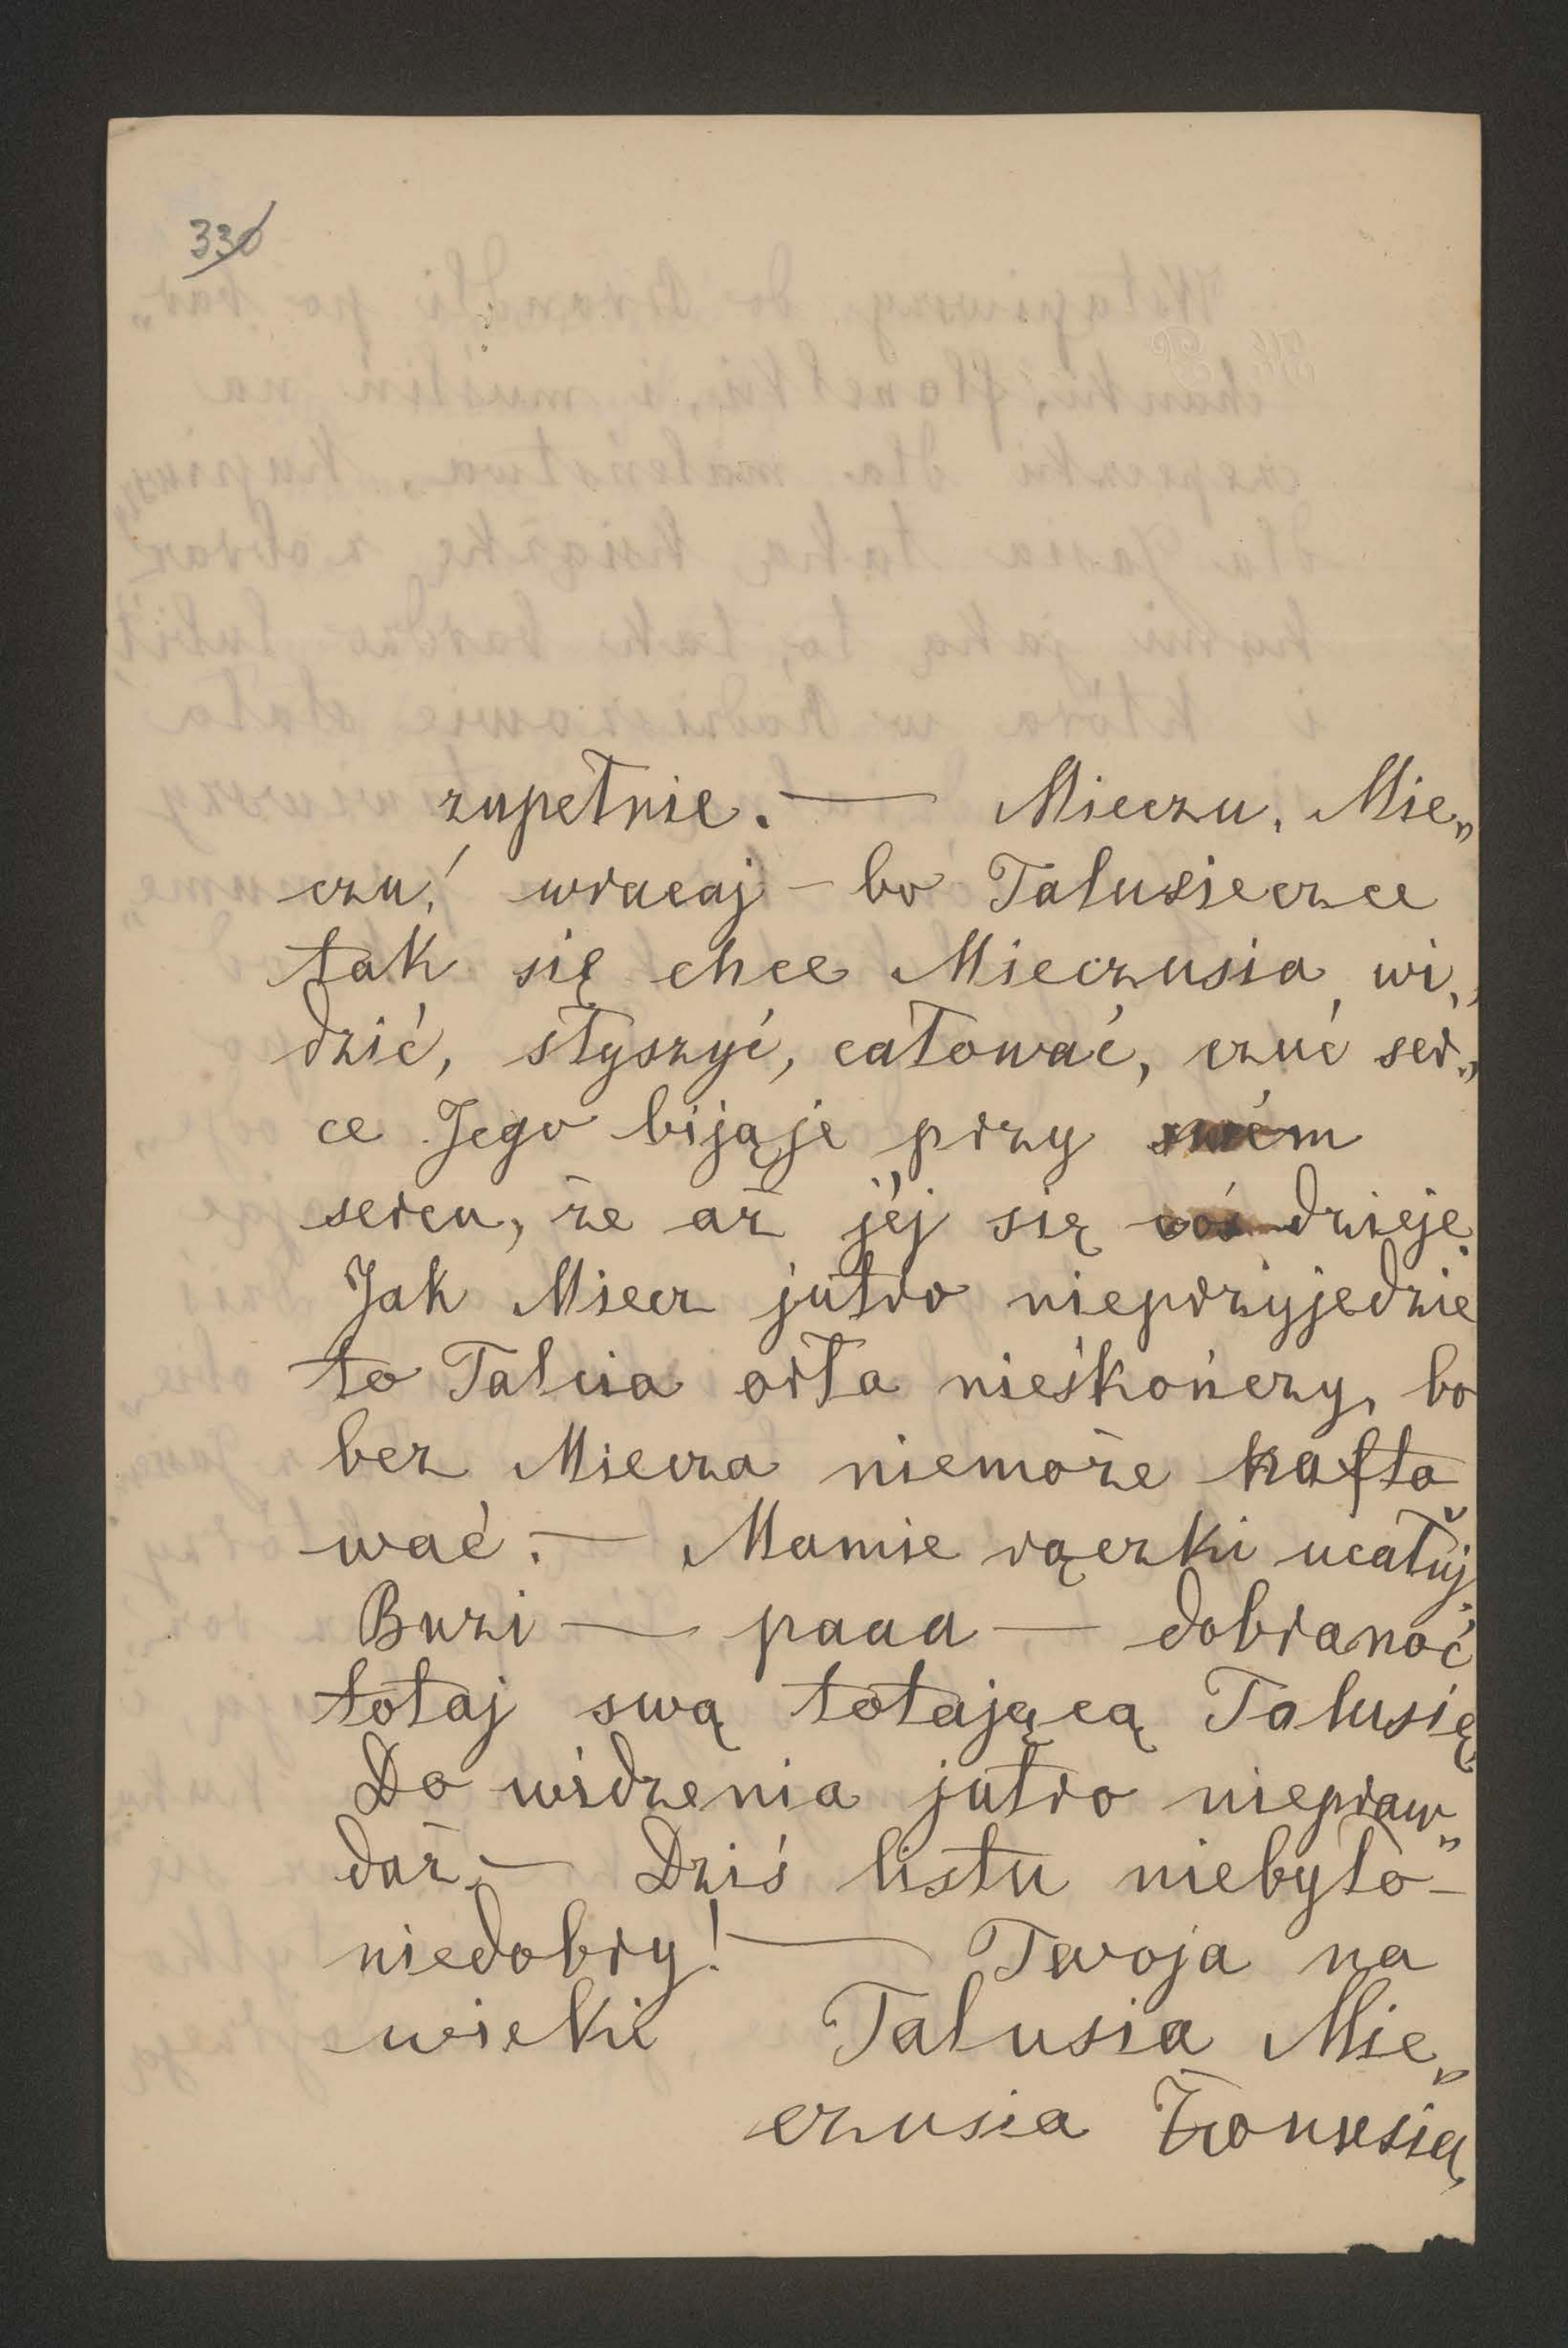 330
zupełnie. — Mieczu, Mie„
czu! wracaj – bo Talusieczce
tak się chce Mieczusia wi„
dzić, słyszyć, całować, czuć ser„
ce Jego bijąje przy swém
sercu, że aż jéj się coś dzieje.
Jak Miecz jutro nieprzyjedzie
to Talcia orła nieskończy, bo
bez Miecza niemoże hafto
wać. — Mamie rączki ucałuj.
Buzi — paaa — dobranoć
totaj swą totającą Talusię
Do widzenia jutro niepraw„
daż. — Dziś listu niebyło –
niedobry! — Twoja na
wieki Talusia Mie„
czusia Żonusia